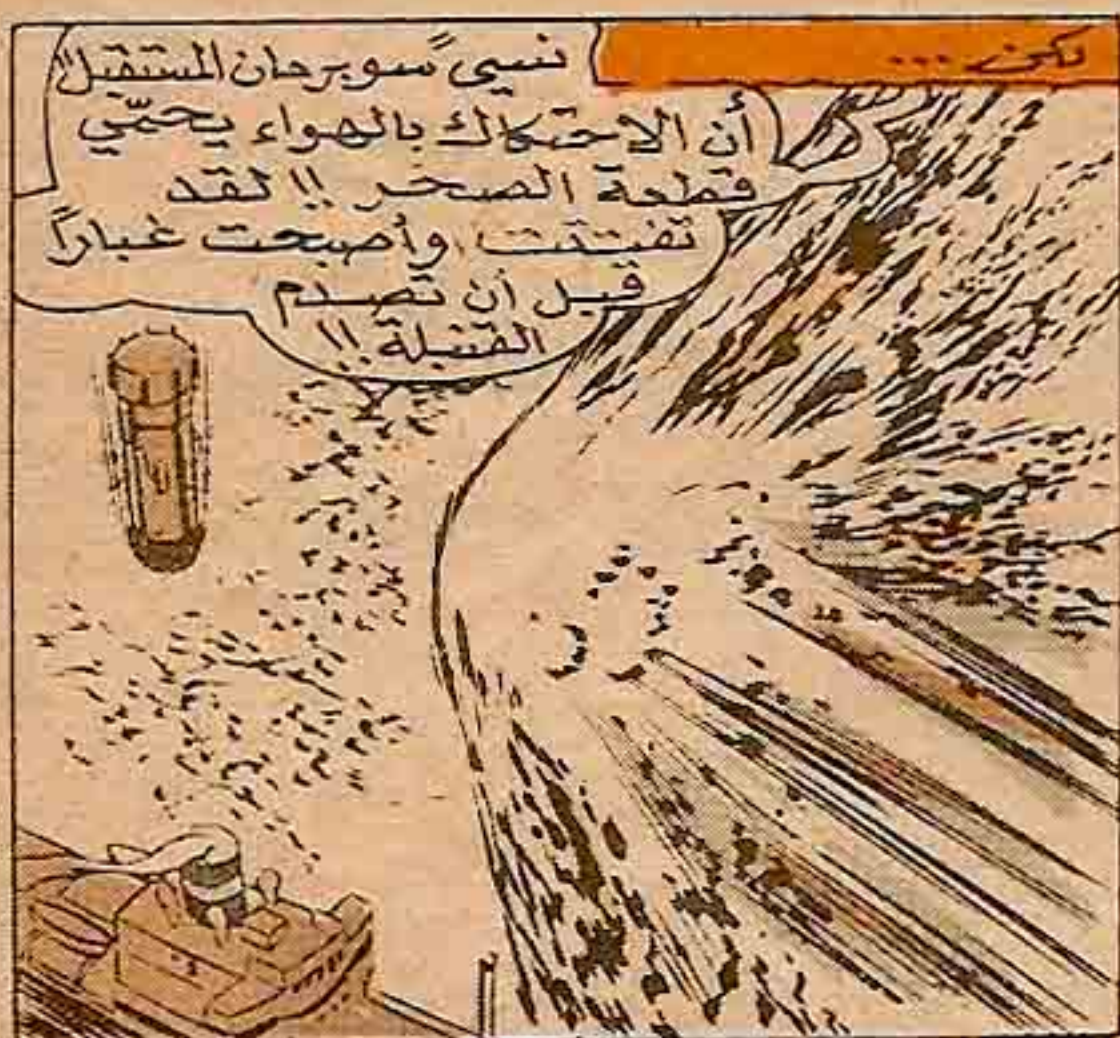 لكن ...
نسي "سوبرمان المستقبل"
أن الاحتكاك بالهواء يحمّي
قطعة الصخر !! لقد
تفتتت وأصبحت غباراً
قبل أن تصدم
القنبلة !!